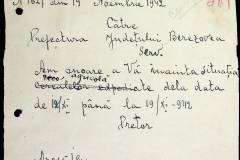 N 1627 din 19 Noembrie 1942
Către
Prefectura Județului Berezovca
Serv.
Am onoare a Vă înainta situația
agricolă
cerealelor expediate dela data
de 12/XI până la 19/XI-942
Pretor